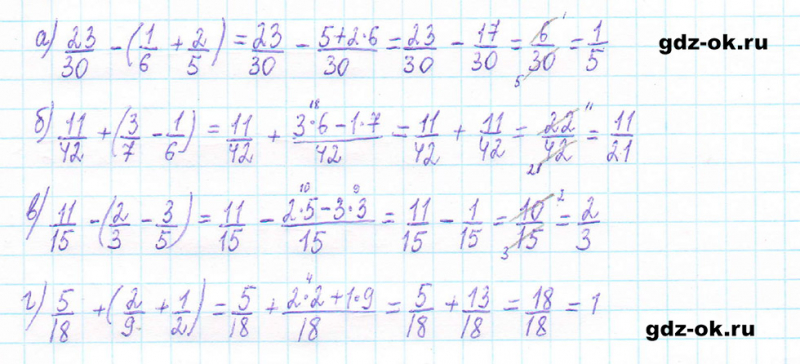 а) 23/30 - (1/6 + 2/5) = 23/30 - (5+2·6)/30 = 23/30 - 17/30 = 6/30 = 1/5
gdz-ok.ru
б) 11/42 + (3/7 - 1/6) = 11/42 + (3·6-1·7)/42 = 11/42 + 11/42 = 22/42 = 11/21
в) 11/15 - (2/3 - 3/5) = 11/15 - (2·5-3·3)/15 = 11/15 - 1/15 = 10/15 = 2/3
г) 5/18 + (2/9 + 1/2) = 5/18 + (2·2+1·9)/18 = 5/18 + 13/18 = 18/18 = 1
gdz-ok.ru